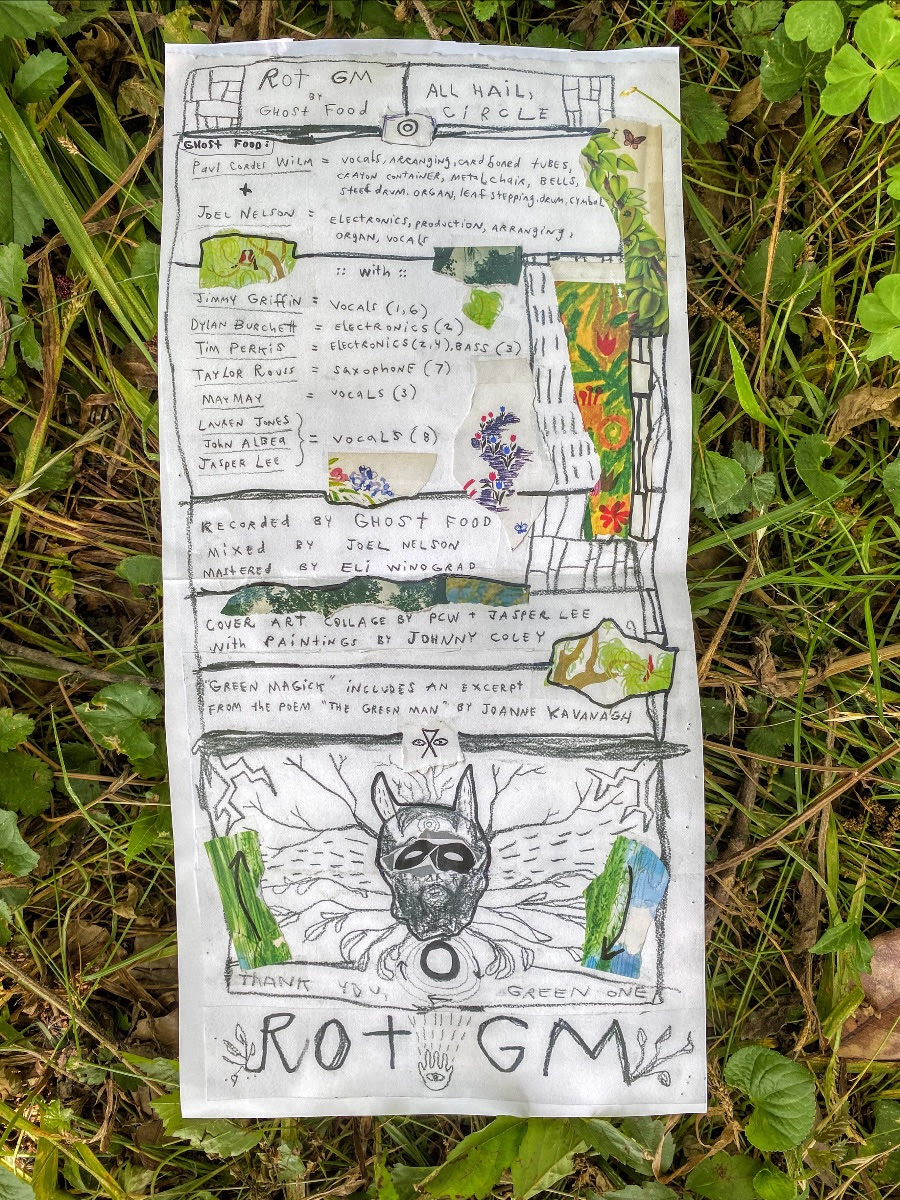 Rot GM
BY
GHOSt FOOD
ALL HAIL,
CIRCLE
GHOST FOOD:
PAUL CORDES WILM = vocals, ARRANGING, cardboned tUBES,
CRAYON CONTAINER, METAL chAIR, BELLS,
StEEl dRUM, ORGAN, leaf stepping, drum, cymbal
+
JOEL NELSON = ELECTRONICS, production, ARRANGING,
ORGAN, vocals
:: with ::
JIMMY GRIFFIN = Vocals (1,6)
DYLAN BURCHETT = ELECTRONICS (2)
TIM PERKIS = ELECTRONICS (2,4), BASS (3)
TAYLOR ROUSS = SAXOPHONE (7)
MAYMAY = vocals (3)
LAUREN JONES
JOHN ALBEA = VOCALS (8)
JASPER LEE
RECORDED BY GHOSt FOOD
mixed BY JOEL NELSON
MASTERED BY ELI WINOGRAD
COVER ART COLLAGE BY PCW + JASPER LEE
with PAINTINGS BY JOHNNY COLEY
"GREEN MAGICK" INCLUDES AN EXCERPT
FROM the POEM "THE GREEN MAN" BY JOANNE KAVANAGH
THANK YOU, GREEN ONE
ROt GM